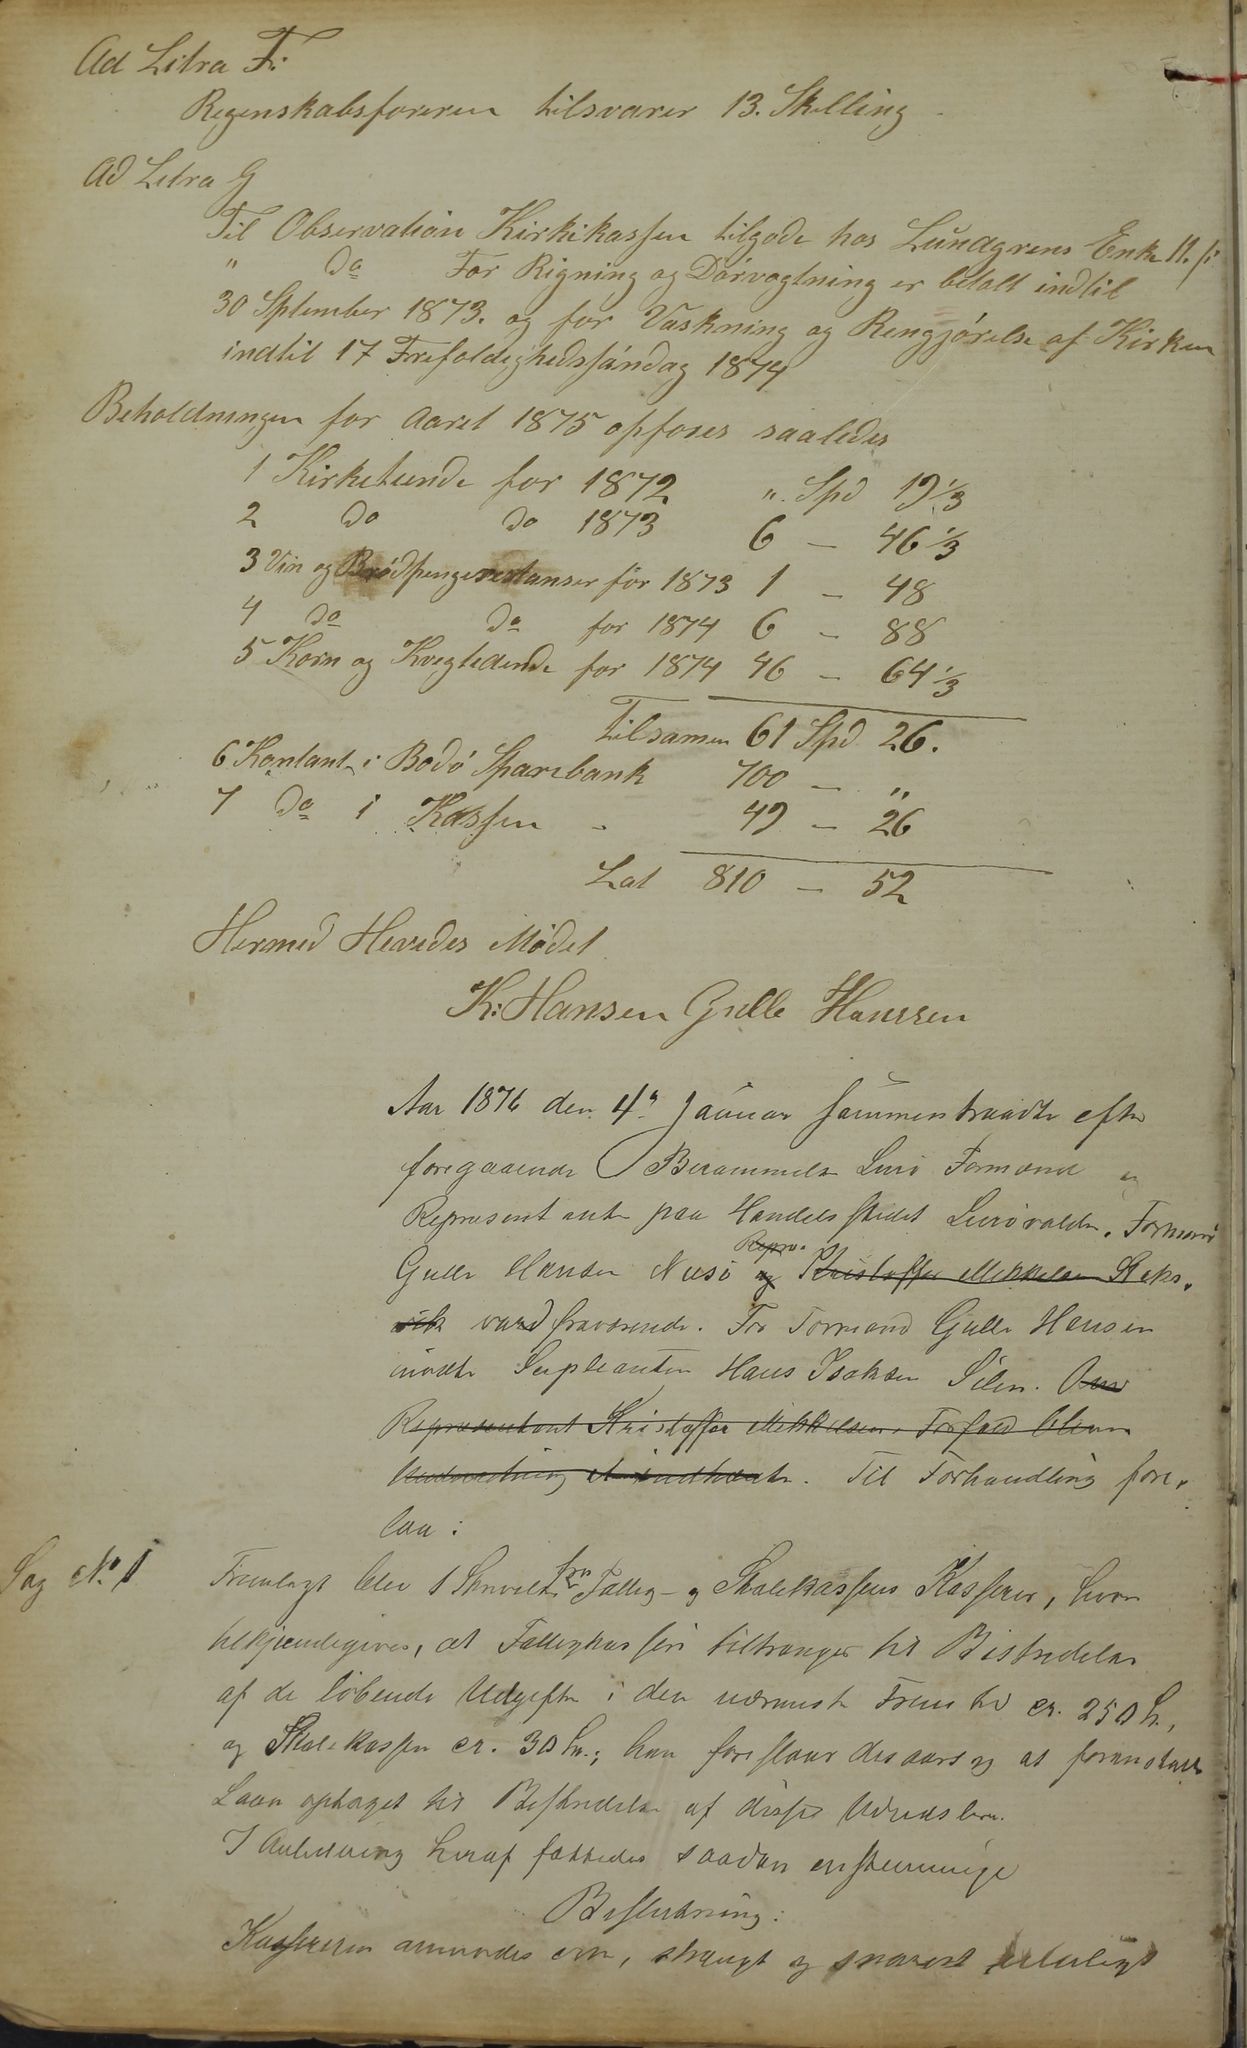 Ad Litra F.
Regenskabsføreren tilsvarer 13. Skilling.
Ad Litra G
Til Observation Kirkikassen tilgode hos Lundgrens Enke 11. ß
" do For Rigning og Dørvogtning er betalt indtil
30 Sptember 1873. og for Vaskning og Rengjørelse af Kirken
indtil 17 Trefoldighedssøndag 1874
Beholdningen for Aaret 1875 opføres saaledes
1 Kirketiende for 1872 " Spd 19 1/3
2 do do 1873 6 — 46 1/3
3 Vin og Brødpengerestanser for 1873 1 — 48
4 do do for 1874 6 — 88
5 Korn og Kvegtiende for 1874 46 — 64 1/3
Tilsamen 61 Spd 26.
6 Kontant i Bodø Sparebank 700 — "
7 do i Kassen - 49 — 26
Lat 810 — 52
Hermed Hevedes Mødet
K: Hansen Gulle Hanssen
Aar 1876 den 4de Januar sammentraadte efter
foregaaende Berammelse Lurø Formænd og
Repræsentanter paa Handelsstedet Lurøvalden. Formænd
Repr.
Gulle Hansen Nesø og Kristoffer Mikkelsen Stoks-
vik vard fraværende. For Formand Gulle Hansen
mødte Supleanten Hans Isaksen Silen. Om
Repræsentant Kristoffer Mikkelsens Forfald blev
. Til Forhandling fore-
laa:
Sag No 1
Fremlagt blev 1 Skrivelse fra Fattig- og Skolekassens Kasserer, hvori
tilkjendegives, at Fattigkassen tiltrænger til Bestridelse
af de løbende Udgifter i den nærmeste Fremtid cr. 250 Kr.,
og Skolekassen cr. 30 Kr.; han foreslaar desaarsag at foranstalte
Laan optaget til Bestridelse af disse Udredsler.
I Anledning heraf fattedes saadan enstemmige
Beslutning:
Kassereren anmodes om, strengt og snarest muligt